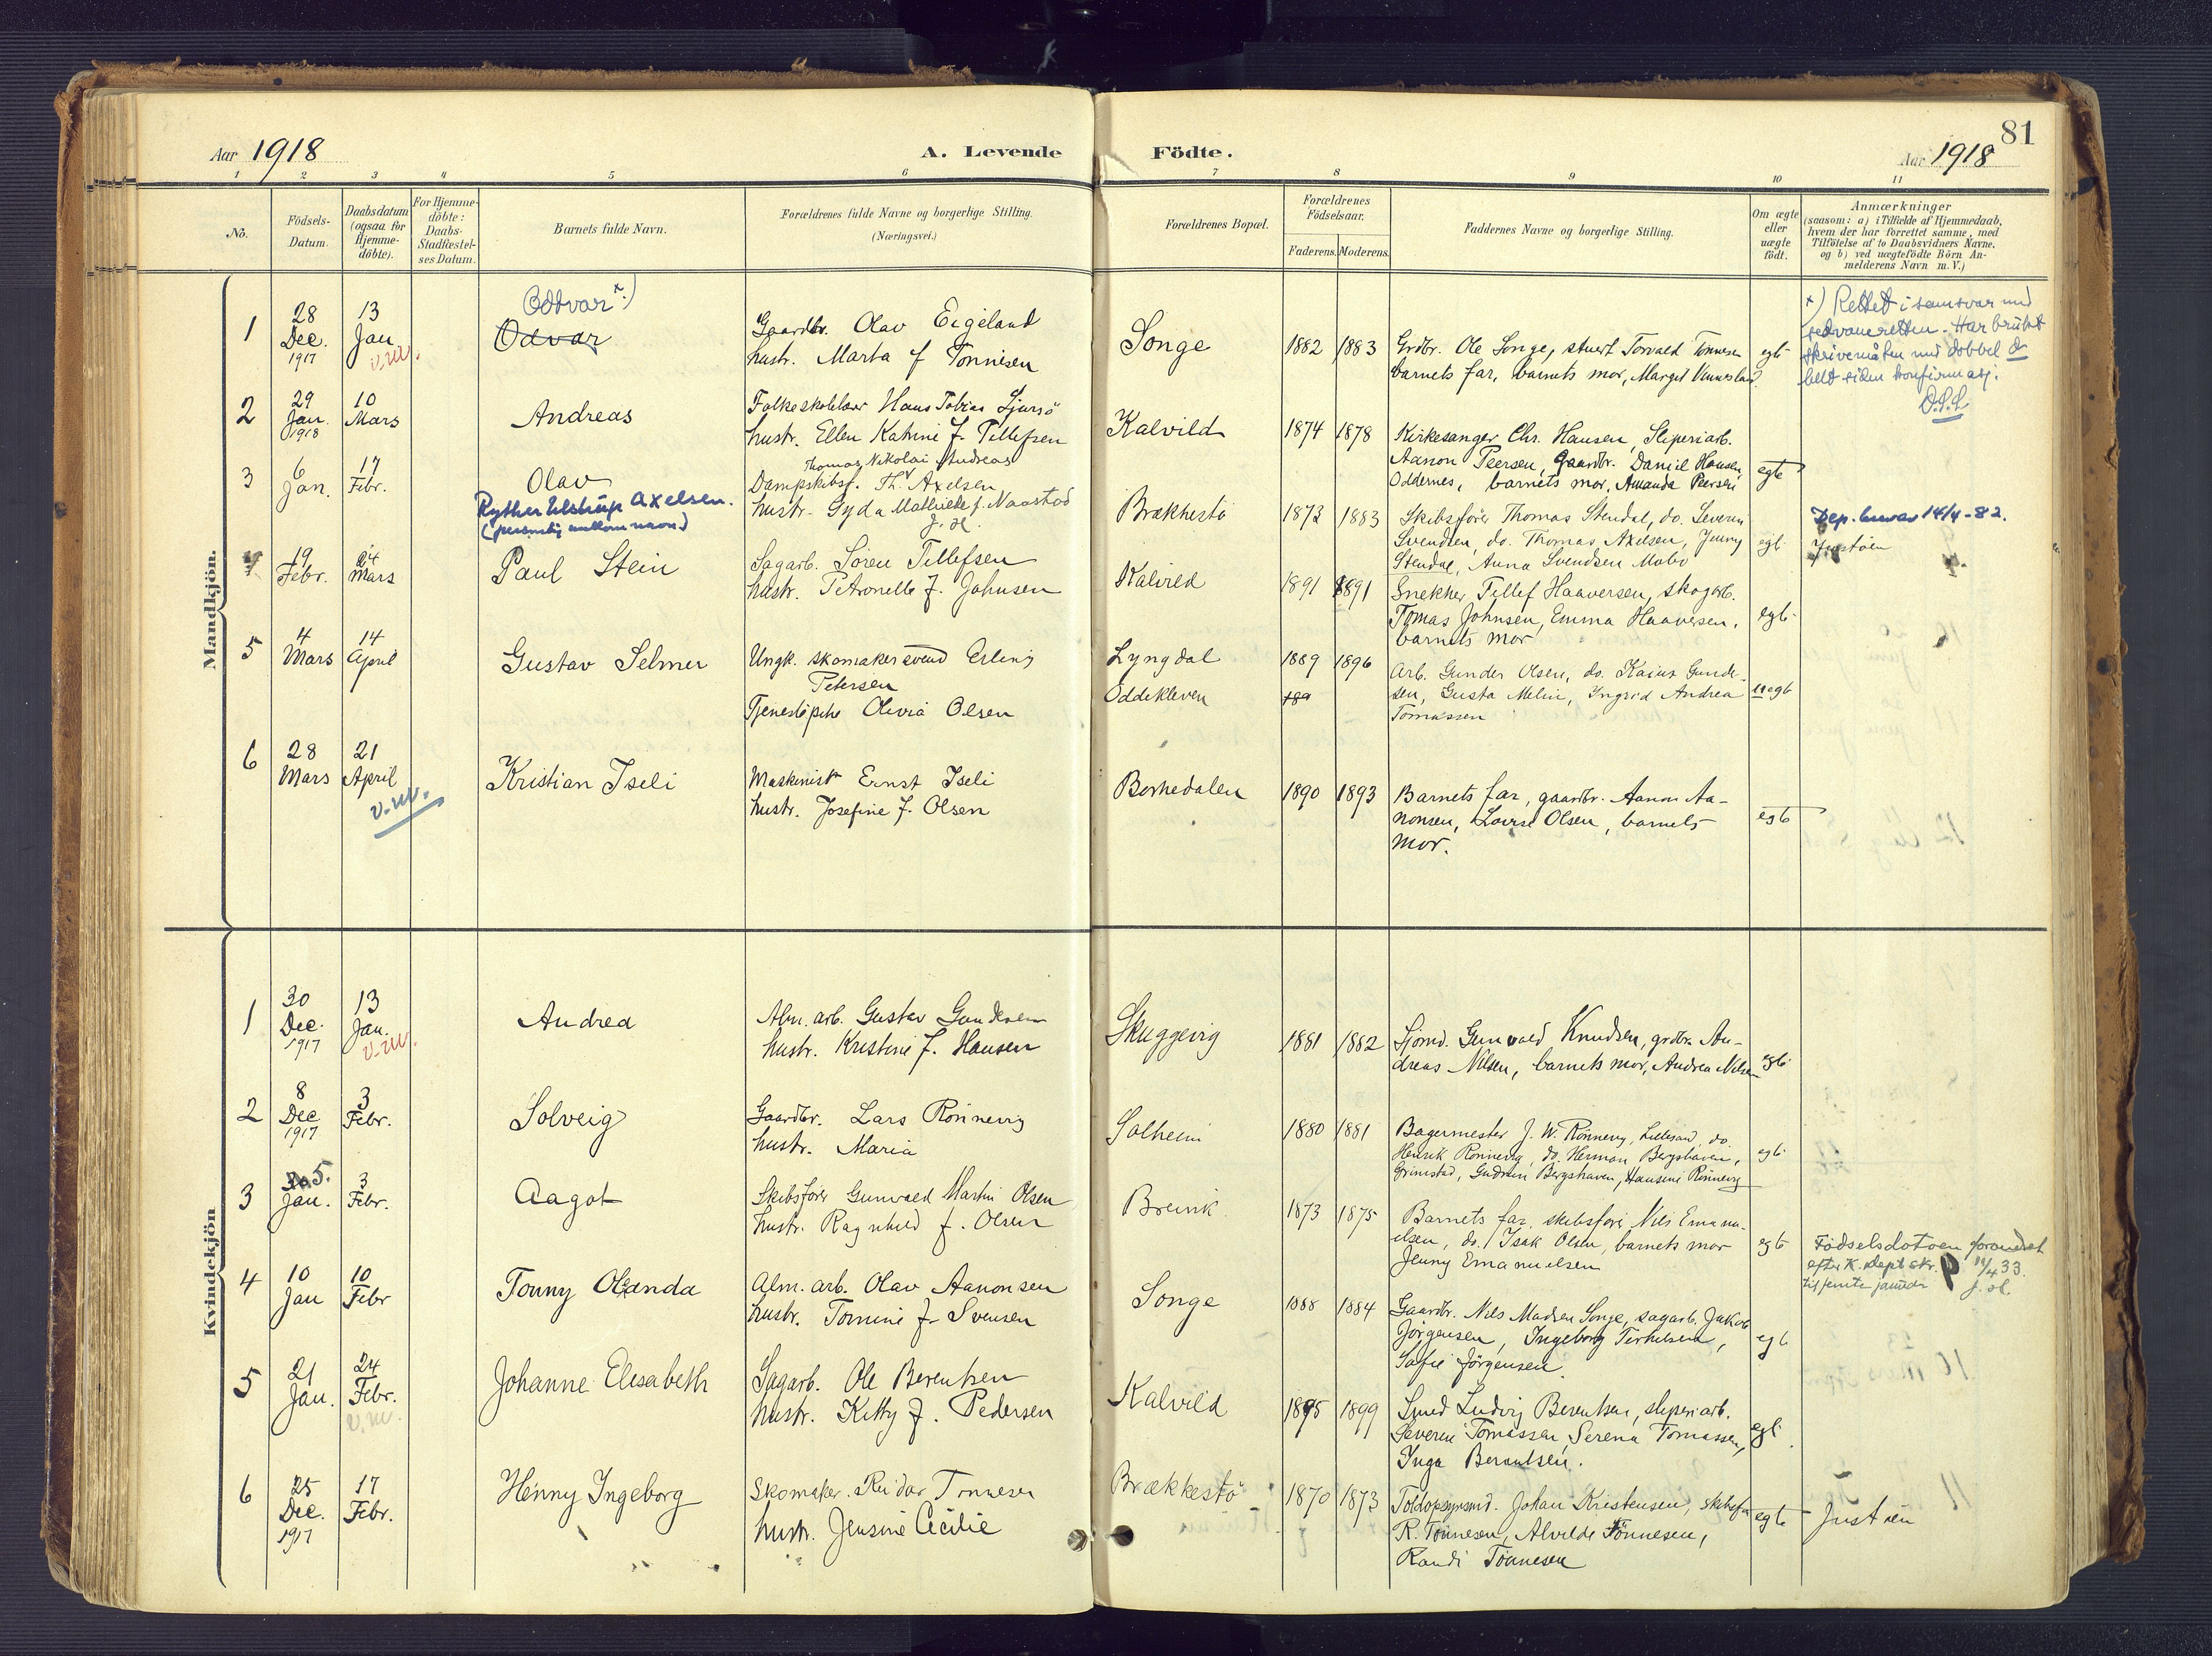 81
Aar 1918
A. Levende
Födte.
Aar 1918
1 2 3 4 5 6 7 8 9 10 11
No.
Födsels-
Datum.
Daabsdatum
(ogsaa for
Hjemme-
döbte).
For Hjemme-
döbte:
Daabs-
Stadfæstel-
ses Datum.
Barnets fulde Navn.
Forældrenes fulde Navne og borgerlige Stilling.
(Næringsvei.)
Forældrenes Bopæl.
Forældrenes
Födselsaar.
Faderens. Moderens.
Faddernes Navne og borgerlige Stilling.
Om ægte
eller
uægte
födt.
Anmærkninger
(saasom: a) i Tilfælde af Hjemmedaab,
hvem der har forrettet samme, med
Tilföielse af to Daabsvidners Navne.
og b) ved uægtefödte Börn An-
melderens Navn m. V.)
Mandkjön.
1
28
Dec.
1917
13
Jan.
v.m.
Oddvar x)
Odvar
Gaardbr. Olav Eigeland
hustr. Marta f Tönnisen
Songe
1882 1883
Grdbr. Ole Songe, stuert Torvald Tönnesen
barnets far, barnets mor, Margit Venneslad
egt
x) Rettet i samsvar med
sedvaneretten. Har brukt
skrivemåten med dobbel d
helt siden konfirmasj.
O.S.L
2
29
Jan.
1918
10
Mars
Andreas
Folkeskolelær Hans Tobias Ljursö
hustr. Ellen Katrine f. Tellefsen
Kalvild
1874 1878
Kirkesanger Chr. Hansen, Sliperiarb.
Aanon Peersen, gaardbr. Daniel Hansen,
Oddernes, barnets mor, Amanda Peersen
egte
3
6
Jan.
17
Febr.
Olav
Ryther Elstrup Axelsen.
(personlig mellom navn)
Thomas Nikolai Andreas
Dampskibsf. Th. Axelsen
hustr. Gyda Mathilde f. Naastad
J. Sl.
Brækkestö
1873 1883
Skibsförer Thomas Stendal, do. Severin
Svendsen, do. Thomas Axelsen, Jenny
Stendal, Anna Svendsen Molov
egt
Dep. brev av 14/4-82.
Justöen
4
19
Febr.
24
Mars
Paul Stein
Sagarb. Sören Tellefsen
hustr. Petronelle f. Johnsen
Kalvild
1891 1891
Snekker Tellef Haaversen, skogarb.
Tomas Johnsen, Emma Haaversen,
barnets mor
egt
5
4
Mars
14
April
Gustav Selmer
Ungk. skomakersvend Erling
Petersen
Tjenestepike Olivia Olsen
Lyngdal
Oddekleven
1889 1896
189
Arb. Gunder Olsen, do. Kaius Gunder-
sen, Gusta Melin, Yngrid Andrea
Tomassen
uegt
6
28
Mars
21
April
v.m.
Kristian Iseli
Maskinist Ernst Iseli
hustr. Josefine f. Olsen
Borkedalen
1890 1893
Barnets far, gaardbr. Aanon Aa-
nonsen, Lovise Olsen, barnets
mor.
egt
Kvindekjön
1
30
Dec.
1917
13
Jan.
v.m.
Andrea
Alm. arb. Gustav Gundersen
hustr. Kristine f. Hansen
Skuggevig
1881 1882
Sjömd. Gunvald Knudsen, grdbr. An-
dreas Nilsen, barnets mor, Andrea Nilsen
egt
2
8
Dec
1917
3
Febr.
Solveig
Gaardbr. Lars Rönnevig
hustr. Maria
Solheim
1880 1881
Bagermester J. W. Rönnevig, Lillesand, do.
Henrik Rönnevig, do. Herman Bergshaven,
Grimstad, Gudrun Bergshaven, Hansine Rönnevig
egt
3
5.
Jan.
3
Febr.
Aagot
Skibsförer Gunvald Martin Olsen
hustr. Ragnhild f. Olsen
Breivik
1873 1875
Barnets far, skibsförer Nils Emanu-
elsen, do. Isak Olsen, barnets mor
Jenny Emanuelsen
egt
Födselsdatoen forandret
efter K. Dept skr. 11/4 33.
til femte januar J. Sl.
4
10
Jan
10
Febr
Tonny Olanda
Alm. arb. Olav Aanonsen
hustr. Tomine f. Svensen
Songe
1888 1884
Gaardbr. Nils Madsen Songe, sagarb. Jakob
Jörgensen, Ingeborg Terkelsen,
Sofie Jörgensen.
egt
5
21
Jan.
24
Febr.
v.m.
Johanne Elisabeth
Sagarb. Ole Berentsen
hustr. Kitty f. Pedersen
Kalvild
1895 1899
Smed Ludvig Berentsen, sliperiarb.
Severin Tomassen, Serena Tomassen,
Inga Berentsen.
egt
6
25
Dec.
1917
17
Febr.
Henny Ingeborg
Skomaker Reidar Tönnesen
hustr. Jensine Cecilie
Brækkestö
1870 1873
Toldopsynsmd. Johan Kristensen, skibsf
R. Tönnesen, Alvilde Tönnesen,
Randi Tönnesen
egt
Justöen